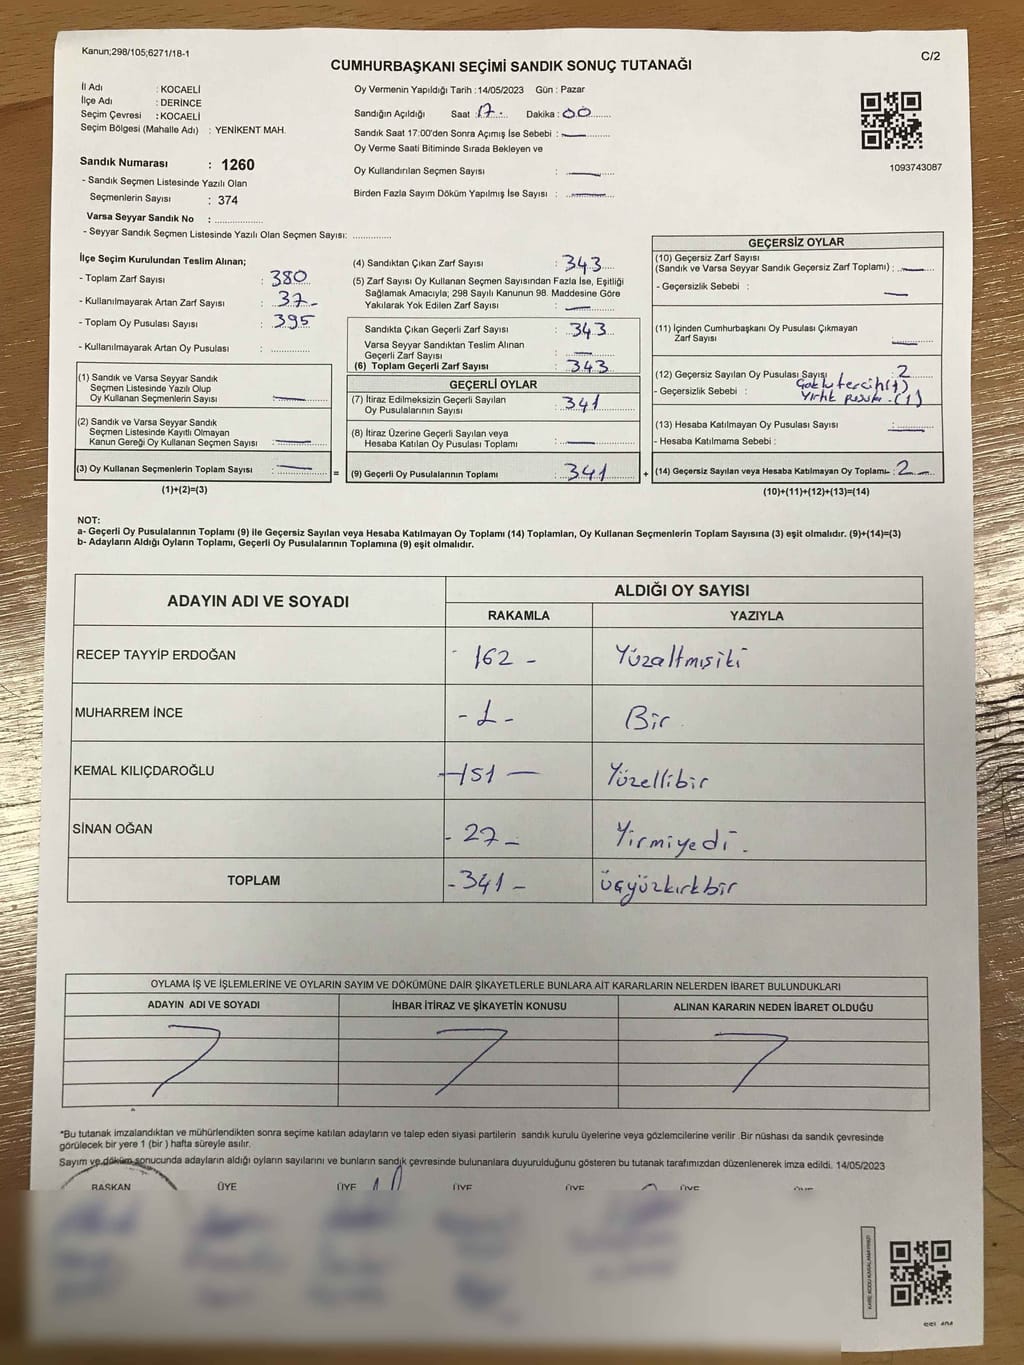 Kanun;298/105;6271/18-1
C/2
CUMHURBAŞKANI SEÇİMİ SANDIK SONUÇ TUTANAĞI
İl Adı : KOCAELİ
İlçe Adı : DERİNCE
Seçim Çevresi : KOCAELİ
Seçim Bölgesi (Mahalle Adı) : YENİKENT MAH.
Sandık Numarası : 1260
- Sandık Seçmen Listesinde Yazılı Olan
Seçmenlerin Sayısı : 374
Varsa Seyyar Sandık No : ................
- Seyyar Sandık Seçmen Listesinde Yazılı Olan Seçmen Sayısı: .............
Oy Vermenin Yapıldığı Tarih : 14/05/2023 Gün : Pazar
Sandığın Açıldığı Saat : 17. Dakika : 00
Sandık Saat 17:00'den Sonra Açımış İse Sebebi : —
Oy Verme Saati Bitiminde Sırada Bekleyen ve
Oy Kullandırılan Seçmen Sayısı : —
Birden Fazla Sayım Döküm Yapılmış İse Sayısı : —
1093743087
İlçe Seçim Kurulundan Teslim Alınan;
- Toplam Zarf Sayısı : 380
- Kullanılmayarak Artan Zarf Sayısı : 37-
- Toplam Oy Pusulası Sayısı : 395
- Kullanılmayarak Artan Oy Pusulası : .............
(1) Sandık ve Varsa Seyyar Sandık
Seçmen Listesinde Yazılı Olup
Oy Kullanan Seçmenlerin Sayısı : —
(2) Sandık ve Varsa Seyyar Sandık
Seçmen Listesinde Kayıtlı Olmayan
Kanun Gereği Oy Kullanan Seçmen Sayısı : —
(3) Oy Kullanan Seçmenlerin Toplam Sayısı : —
(1)+(2)=(3)
=
(4) Sandıktan Çıkan Zarf Sayısı : 343
(5) Zarf Sayısı Oy Kullanan Seçmen Sayısından Fazla İse, Eşitliği
Sağlamak Amacıyla; 298 Sayılı Kanunun 98. Maddesine Göre
Yakılarak Yok Edilen Zarf Sayısı : —
Sandıkta Çıkan Geçerli Zarf Sayısı : 343
Varsa Seyyar Sandıktan Teslim Alınan
Geçerli Zarf Sayısı : —
(6) Toplam Geçerli Zarf Sayısı : 343
GEÇERLİ OYLAR
(7) İtiraz Edilmeksizin Geçerli Sayılan
Oy Pusulalarının Sayısı : 341
(8) İtiraz Üzerine Geçerli Sayılan veya
Hesaba Katılan Oy Pusulaları Toplamı : —
(9) Geçerli Oy Pusulalarının Toplamı : 341
+
GEÇERSİZ OYLAR
(10) Geçersiz Zarf Sayısı
(Sandık ve Varsa Seyyar Sandık Geçersiz Zarf Toplamı) : —
- Geçersizlik Sebebi : —
(11) İçinden Cumhurbaşkanı Oy Pusulası Çıkmayan
Zarf Sayısı : —
(12) Geçersiz Sayılan Oy Pusulası Sayısı : 2
- Geçersizlik Sebebi : Çoklu tercih(1)
Yırtık pusula.(1)
(13) Hesaba Katılmayan Oy Pusulası Sayısı : —
- Hesaba Katılmama Sebebi :
(14) Geçersiz Sayılan veya Hesaba Katılmayan Oy Toplamı- : 2 —
(10)+(11)+(12)+(13)=(14)
NOT:
a- Geçerli Oy Pusulalarının Toplamı (9) ile Geçersiz Sayılan veya Hesaba Katılmayan Oy Toplamı (14) Toplamları, Oy Kullanan Seçmenlerin Toplam Sayısına (3) eşit olmalıdır. (9)+(14)=(3)
b- Adayların Aldığı Oyların Toplamı, Geçerli Oy Pusulalarının Toplamına (9) eşit olmalıdır.
ADAYIN ADI VE SOYADI
ALDIĞI OY SAYISI
RAKAMLA YAZIYLA
RECEP TAYYİP ERDOĞAN - 162 - Yüzaltmışiki
MUHARREM İNCE - 1 - Bir
KEMAL KILIÇDAROĞLU - 151 - Yüzellibir
SİNAN OĞAN - 27 - Yirmiyedi.
TOPLAM - 341 - üçyüzkırkbir
OYLAMA İŞ VE İŞLEMLERİNE VE OYLARIN SAYIM VE DÖKÜMÜNE DAİR ŞİKAYETLERLE BUNLARA AİT KARARLARIN NELERDEN İBARET BULUNDUKLARI
ADAYIN ADI VE SOYADI İHBAR İTİRAZ VE ŞİKAYETİN KONUSU ALINAN KARARIN NEDEN İBARET OLDUĞU
*Bu tutanak imzalandıktan ve mühürlendikten sonra seçime katılan adayların ve talep eden siyasi partilerin sandık kurulu üyelerine veya gözlemcilerine verilir .Bir nüshası da sandık çevresinde
görülecek bir yere 1 (bir ) hafta süreyle asılır.
Sayım ve döküm sonucunda adayların aldığı oyların sayılarını ve bunların sandık çevresinde bulunanlara duyurulduğunu gösteren bu tutanak tarafımızdan düzenlenerek imza edildi. 14/05/2023
BAŞKAN ÜYE ÜYE ÜYE ÜYE ÜYE ÜYE